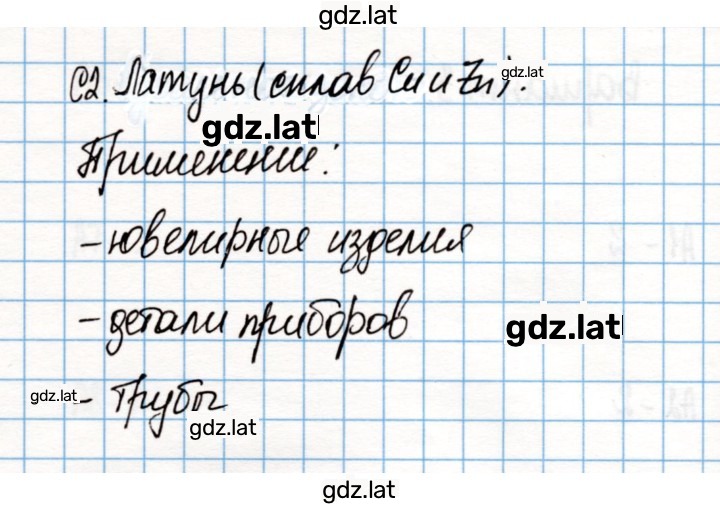 gdz.lat
С2. Латунь (сплав Cu и Zn).
gdz.lat
gdz.lat
Применение:
- ювелирные изделия
- детали приборов
gdz.lat
gdz.lat
- Трубы
gdz.lat
gdz.lat